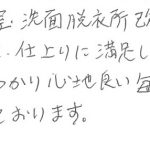 室・洗面脱衣所改
、仕上りに満足し
つかり心地良い毎
ております。